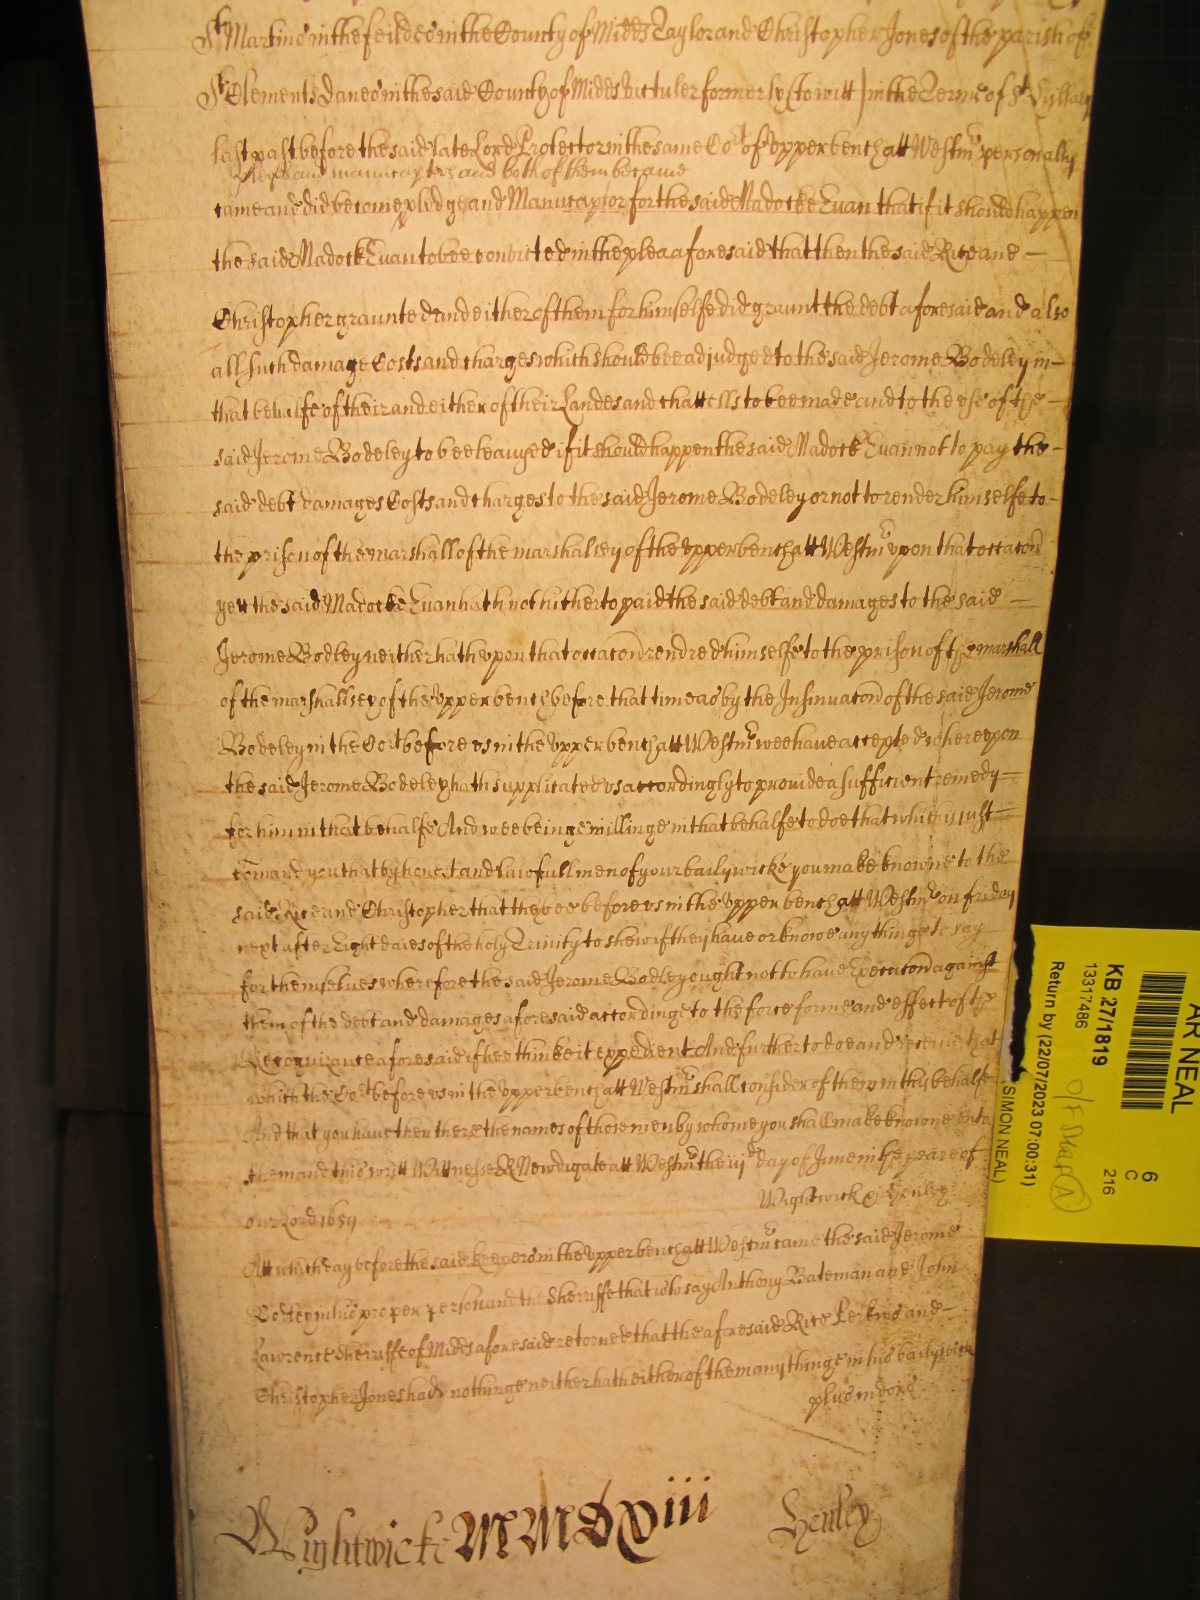 St Martins in the feildes in the County of Midds Taylor and Christopher Jones of the parish of
St Clements Danes in the said County of Midds victuler formerly (to witt) in the Terme of St Hillary
last past before the said late Lord Protector in the same Cort of upper bench att Westmr personally
pledges and manucaptors and both of them became
came and did become pledge and Manucaptor for the said Madocke Evan that if it should happen
the said Madock Evan to bee convicted in the plea aforesaid that then the said Rice and
Christopher graunted and either of them for himselfe did graunt the debt aforesaid and also
all such damage Costs and charges which should bee adjudged to the said Jerome Bodeley in
that behalfe of their and either of their Landes and chattells to bee made and to the use of the
said Jerome Bodeley to bee leavyed if it should happen the said Madock Evan not to pay the
said debt damages Costs and charges to the said Jerome Bodeley or not to render himselfe to
the prison of the marshall of the marshalsey of the upper bench att Westmr upon that occacon
yett the said Madocke Evan hath not hitherto paid the said debt and damages to the said
Jerome Bodley neither hath upon that occacon rendred himselfe to the prison of the marshall
of the marshallsey of the upper bench before that time as by the Insinuacon of the said Jerome
Bodeley in the Cort before us in the upper bench att Westmr wee have accepted whereupon
the said Jerome Bodeley hath supplicated us accordingly to provide a sufficient remedy
for him in that behalfe And wee beinge willinge in that behalfe to doe that which is just
comand you that by honest and lawfull men of your bailywicke you make knowne to the
said Rice and Christopher that they bee before us in the upper bench att Westmr on friday
next after Eight daies of the holy Trinity to shew if they have or knowe any thinge to say
for themselves wherefore the said Jerome Bodley ought not to have Execucon against
them of the debt and damages aforesaid accordinge to the force forme and effect of the
Recognizance aforesaid if hee thinke it expedient And further to doe and receive that
which the Cort before us in the upper bench att Westmr shall consider of them in this behalfe
And that you have then there the names of those men by whome you shall make knowne unto
them and this writt Wittnesse R Newdigate att Westmr the iijd day of June in the yeare of
our Lord 1659
Wightwick & Henley
Att which day before the said keepers in the upper bench att Westmr came the said Jerome
Bodley in his proper person and the Sherriffe that is to say Anthony Bateman and John
Lawrence Sherriffe of Midds aforesaid retorned that the aforesaid Rice Perkins and
Christopher Jones hath nothinge neither hath either of them any thinge in his bailywick
plus in dors
Wightwicke MMDXiii Henley
AR NEAL
KB 27/1819
13317486
Return by (22/07/2023 07:00:31)
(SIMON NEAL)
6
C
216
A